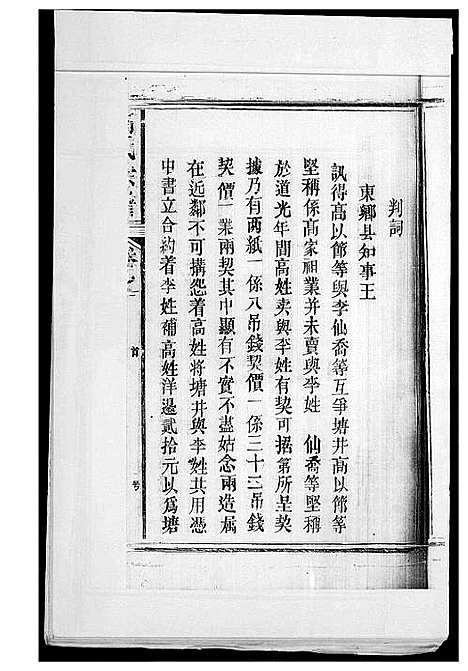 判詞
東鄉县知事王
訊得高以節等與李仙喬等互爭塘井高以節等
堅稱係高家祖業并未賣與李姓 仙喬等堅稱
於道光年間高姓卖與李姓有契可据第所呈契
據乃有两紙一係八吊錢契價一係三十三吊錢
契價一業兩契其中顯有不實不盡姑念兩造属
在近鄰不可搆怨着高姓将塘井與李姓共用憑
中書立合約着李姓補高姓洋邊貳拾元以為塘
氏宗譜
首